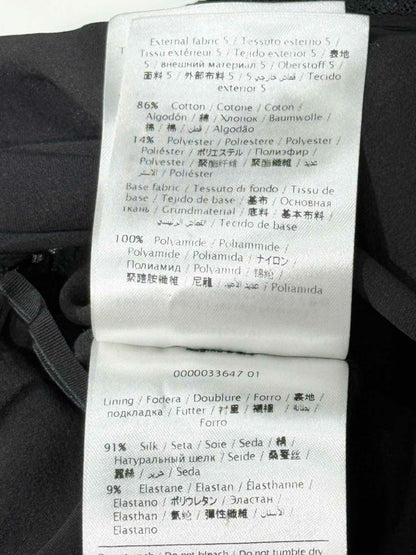 External fabric 5 / Tessuto esterno 5 /
Tissu extérieur 5 / Tejido exterior 5 / 表地
5 / внешний материал 5 / Oberstoff 5 /
面料 5 / 外部布料 5 / قماش خارجي 5 / Tecido
exterior 5
86% Cotton / Cotone / Coton /
Algodón / 綿 / Хлопок / Baumwolle /
棉 / 棉 / قطن / Algodão
14% Polyester / Poliestere / Polyester /
Poliéster / ポリエステル / Полиэфир /
Polyester / 聚酯纤维 / 聚酯纖維 /
/ Poliéster
Base fabric / Tessuto di fondo / Tissu de
base / Tejido de base / 基布 / Основная
ткань / Grundmaterial / 底料 / 基本布料
/ Tecido de base
100% Polyamide / Poliammide /
Polyamide / Poliamida / ナイロン /
Полиамид / Polyamid / 锦纶 /
聚醯胺纖維 / 尼龍 / / Poliamida
0000033647 01
Lining / Fodera / Doublure / Forro / 裏地 /
подкладка / Futter / 衬里 / 襯裡 / بطانة /
Forro
91% Silk / Seta / Soie / Seda / 絹 /
Натуральный шелк / Seide / 桑蚕丝 /
蠶絲 / حرير / Seda
9% Elastane / Elastan / Élasthanne /
Elastano / ポリウレタン / Эластан /
Elasthan / 氨纶 / 彈性纖維 / /
Elastano
Do not bleach / Do not tumble dry